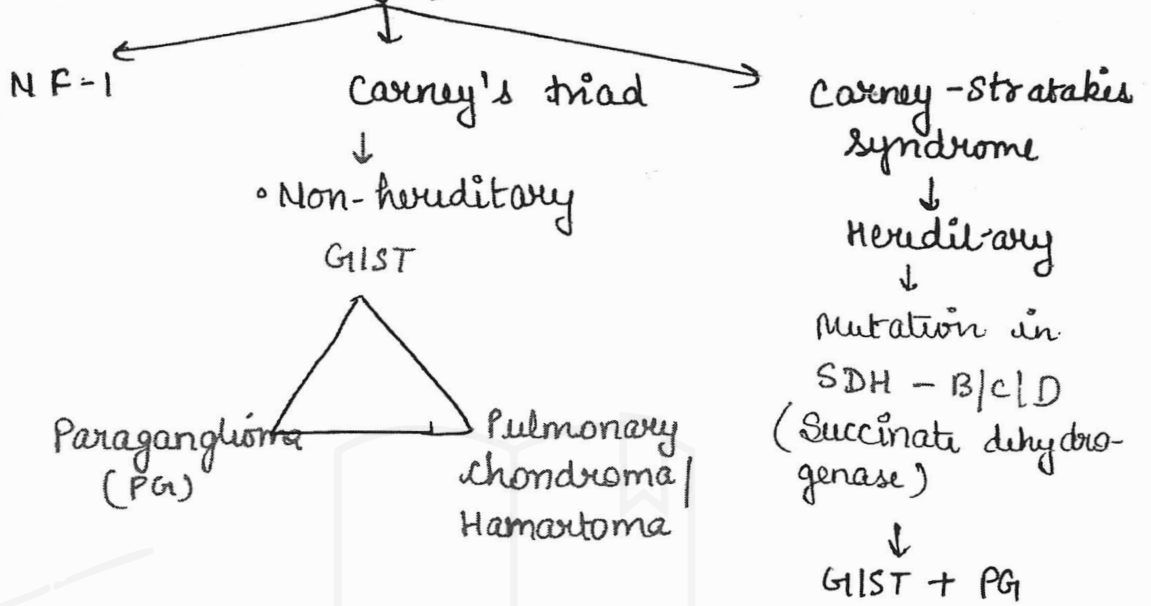 NF-1
Carney's triad
↓
• Non-hereditary
GIST
Paraganglioma
(PG)
Pulmonary
chondroma/
Hamartoma
Carney-Stratakis
syndrome
↓
Hereditary
↓
Mutation in
SDH - B/C/D
(Succinate dehydro-
genase)
↓
GIST + PG